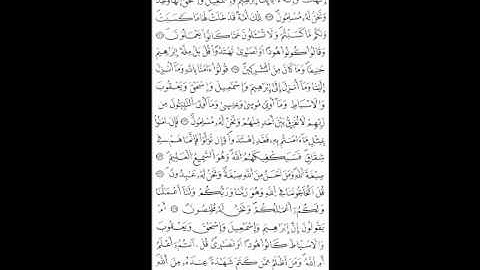 إِلَٰهَكَ وَإِلَٰهَ ءَابَآئِكَ إِبْرَٰهِـۧمَ وَإِسْمَٰعِيلَ وَإِسْحَٰقَ إِلَٰهًا وَٰحِدًا
وَنَحْنُ لَهُۥ مُسْلِمُونَ ۝ تِلْكَ أُمَّةٌ قَدْ خَلَتْ لَهَا مَا كَسَبَتْ
وَلَكُم مَّا كَسَبْتُمْ وَلَا تُسْـَٔلُونَ عَمَّا كَانُوا۟ يَعْمَلُونَ ۝
وَقَالُوا۟ كُونُوا۟ هُودًا أَوْ نَصَٰرَىٰ تَهْتَدُوا۟ قُلْ بَلْ مِلَّةَ إِبْرَٰهِـۧمَ
حَنِيفًا وَمَا كَانَ مِنَ ٱلْمُشْرِكِينَ ۝ قُولُوٓا۟ ءَامَنَّا بِٱللَّهِ وَمَآ أُنزِلَ
إِلَيْنَا وَمَآ أُنزِلَ إِلَىٰٓ إِبْرَٰهِـۧمَ وَإِسْمَٰعِيلَ وَإِسْحَٰقَ وَيَعْقُوبَ
وَٱلْأَسْبَاطِ وَمَآ أُوتِىَ مُوسَىٰ وَعِيسَىٰ وَمَآ أُوتِىَ ٱلنَّبِيُّونَ مِن
رَّبِّهِمْ لَا نُفَرِّقُ بَيْنَ أَحَدٍ مِّنْهُمْ وَنَحْنُ لَهُۥ مُسْلِمُونَ ۝ فَإِنْ ءَامَنُوا۟
بِمِثْلِ مَآ ءَامَنتُم بِهِۦ فَقَدِ ٱهْتَدَوا۟ وَّإِن تَوَلَّوْا۟ فَإِنَّمَا هُمْ فِى
شِقَاقٍ فَسَيَكْفِيكَهُمُ ٱللَّهُ وَهُوَ ٱلسَّمِيعُ ٱلْعَلِيمُ ۝
صِبْغَةَ ٱللَّهِ وَمَنْ أَحْسَنُ مِنَ ٱللَّهِ صِبْغَةً وَنَحْنُ لَهُۥ عَٰبِدُونَ ۝
قُلْ أَتُحَآجُّونَنَا فِى ٱللَّهِ وَهُوَ رَبُّنَا وَرَبُّكُمْ وَلَنَآ أَعْمَٰلُنَا
وَلَكُمْ أَعْمَٰلُكُمْ وَنَحْنُ لَهُۥ مُخْلِصُونَ ۝ أَمْ
يَقُولُونَ إِنَّ إِبْرَٰهِـۧمَ وَإِسْمَٰعِيلَ وَإِسْحَٰقَ وَيَعْقُوبَ
وَٱلْأَسْبَاطَ كَانُوا۟ هُودًا أَوْ نَصَٰرَىٰ قُلْ ءَأَنتُمْ أَعْلَمُ
أَمِ ٱللَّهُ وَمَنْ أَظْلَمُ مِمَّن كَتَمَ شَهَٰدَةً عِندَهُۥ مِنَ ٱللَّهِ